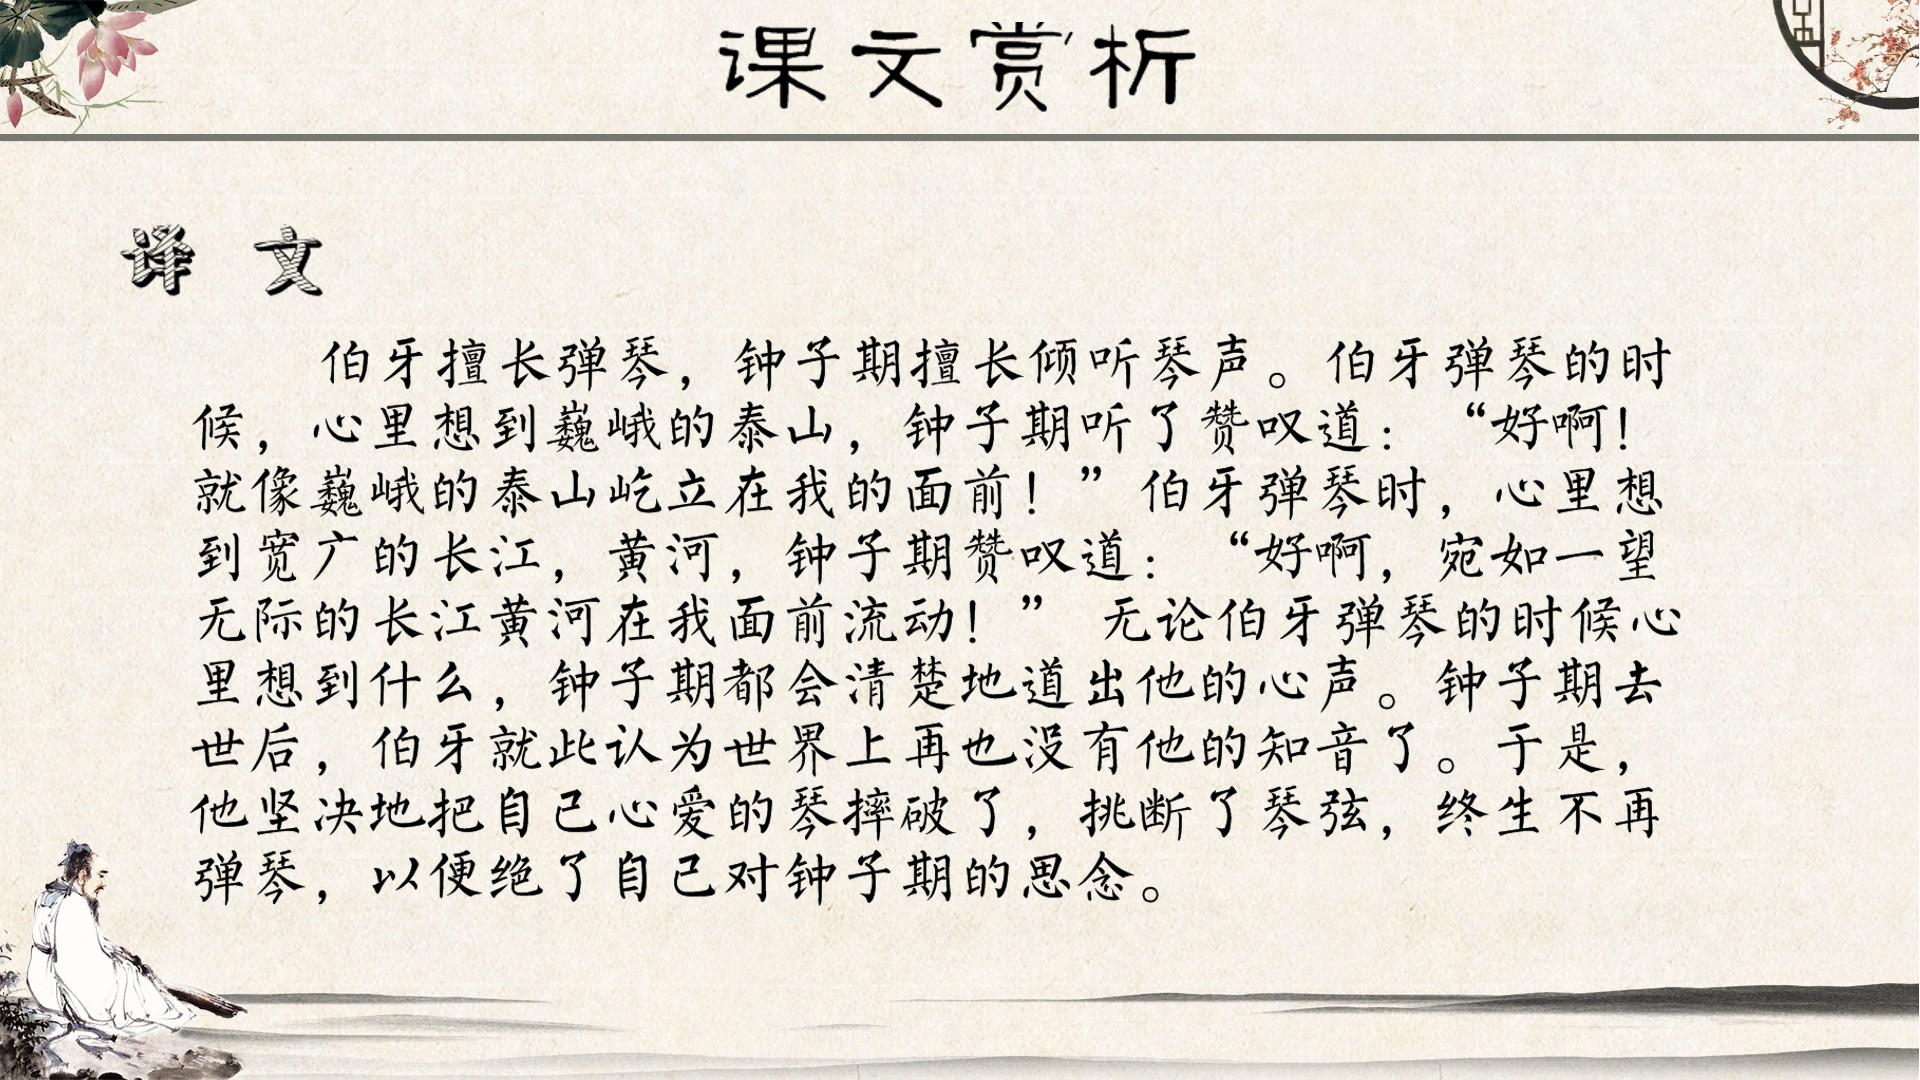 课文赏析
译 文
伯牙擅长弹琴，钟子期擅长倾听琴声。伯牙弹琴的时
候，心里想到巍峨的泰山，钟子期听了赞叹道：“好啊！
就像巍峨的泰山屹立在我的面前！”伯牙弹琴时，心里想
到宽广的长江，黄河，钟子期赞叹道：“好啊，宛如一望
无际的长江黄河在我面前流动！” 无论伯牙弹琴的时候心
里想到什么，钟子期都会清楚地道出他的心声。钟子期去
世后，伯牙就此认为世界上再也没有他的知音了。于是，
他坚决地把自己心爱的琴摔破了，挑断了琴弦，终生不再
弹琴，以便绝了自己对钟子期的思念。